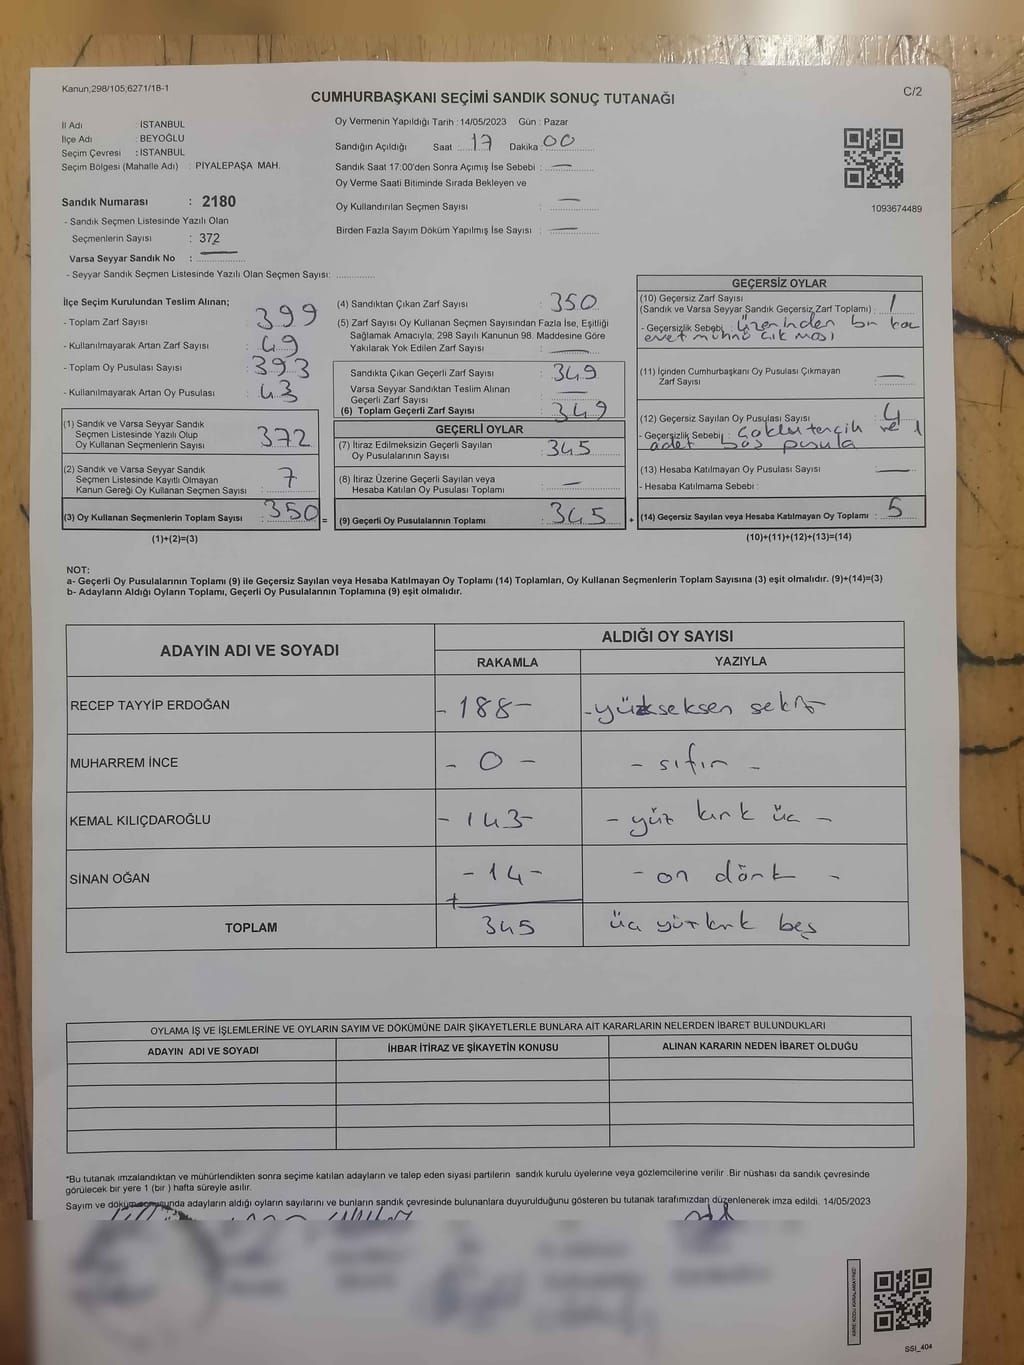 Kanun;298/105;6271/18-1
C/2
CUMHURBAŞKANI SEÇİMİ SANDIK SONUÇ TUTANAĞI
İl Adı : İSTANBUL
İlçe Adı : BEYOĞLU
Seçim Çevresi : İSTANBUL
Seçim Bölgesi (Mahalle Adı) : PİYALEPAŞA MAH.
Sandık Numarası : 2180
- Sandık Seçmen Listesinde Yazılı Olan
Seçmenlerin Sayısı : 372
Varsa Seyyar Sandık No : —
- Seyyar Sandık Seçmen Listesinde Yazılı Olan Seçmen Sayısı: ............
Oy Vermenin Yapıldığı Tarih : 14/05/2023 Gün : Pazar
Sandığın Açıldığı Saat 17 Dakika 00
Sandık Saat 17:00'den Sonra Açımış İse Sebebi : —
Oy Verme Saati Bitiminde Sırada Bekleyen ve
Oy Kullandırılan Seçmen Sayısı : —
Birden Fazla Sayım Döküm Yapılmış İse Sayısı : —
1093674489
İlçe Seçim Kurulundan Teslim Alınan;
- Toplam Zarf Sayısı : 399
- Kullanılmayarak Artan Zarf Sayısı : 49
- Toplam Oy Pusulası Sayısı : 393
- Kullanılmayarak Artan Oy Pusulası : 43
(1) Sandık ve Varsa Seyyar Sandık
Seçmen Listesinde Yazılı Olup
Oy Kullanan Seçmenlerin Sayısı : 372
(2) Sandık ve Varsa Seyyar Sandık
Seçmen Listesinde Kayıtlı Olmayan
Kanun Gereği Oy Kullanan Seçmen Sayısı : 7
(3) Oy Kullanan Seçmenlerin Toplam Sayısı : 350 =
(1)+(2)=(3)
(4) Sandıktan Çıkan Zarf Sayısı : 350
(5) Zarf Sayısı Oy Kullanan Seçmen Sayısından Fazla İse, Eşitliği
Sağlamak Amacıyla; 298 Sayılı Kanunun 98. Maddesine Göre
Yakılarak Yok Edilen Zarf Sayısı : —
Sandıkta Çıkan Geçerli Zarf Sayısı : 349
Varsa Seyyar Sandıktan Teslim Alınan
Geçerli Zarf Sayısı : —
(6) Toplam Geçerli Zarf Sayısı : 349
GEÇERLİ OYLAR
(7) İtiraz Edilmeksizin Geçerli Sayılan
Oy Pusulalarının Sayısı : 345
(8) İtiraz Üzerine Geçerli Sayılan veya
Hesaba Katılan Oy Pusulası Toplamı : —
(9) Geçerli Oy Pusulalarının Toplamı : 345 +
GEÇERSİZ OYLAR
(10) Geçersiz Zarf Sayısı
(Sandık ve Varsa Seyyar Sandık Geçersiz Zarf Toplamı) : 1
- Geçersizlik Sebebi : üzerinden bir kaç
evet mührü çıkması
(11) İçinden Cumhurbaşkanı Oy Pusulası Çıkmayan
Zarf Sayısı : —
(12) Geçersiz Sayılan Oy Pusulası Sayısı : 4
- Geçersizlik Sebebi : Çoklu tercih ve 1
adet boş pusula
(13) Hesaba Katılmayan Oy Pusulası Sayısı : —
- Hesaba Katılmama Sebebi :
(14) Geçersiz Sayılan veya Hesaba Katılmayan Oy Toplamı : 5
(10)+(11)+(12)+(13)=(14)
NOT:
a- Geçerli Oy Pusulalarının Toplamı (9) ile Geçersiz Sayılan veya Hesaba Katılmayan Oy Toplamı (14) Toplamları, Oy Kullanan Seçmenlerin Toplam Sayısına (3) eşit olmalıdır. (9)+(14)=(3)
b- Adayların Aldığı Oyların Toplamı, Geçerli Oy Pusulalarının Toplamına (9) eşit olmalıdır.
ADAYIN ADI VE SOYADI ALDIĞI OY SAYISI
RAKAMLA YAZIYLA
RECEP TAYYİP ERDOĞAN -188- -yüzseksen sekiz
MUHARREM İNCE - 0 - - sıfır -
KEMAL KILIÇDAROĞLU - 143- - yüz kırk üç -
SİNAN OĞAN - 14- - on dört -
TOPLAM 345 üç yüz kırk beş
OYLAMA İŞ VE İŞLEMLERİNE VE OYLARIN SAYIM VE DÖKÜMÜNE DAİR ŞİKAYETLERLE BUNLARA AİT KARARLARIN NELERDEN İBARET BULUNDUKLARI
ADAYIN ADI VE SOYADI İHBAR İTİRAZ VE ŞİKAYETİN KONUSU ALINAN KARARIN NEDEN İBARET OLDUĞU
*Bu tutanak imzalandıktan ve mühürlendikten sonra seçime katılan adayların ve talep eden siyasi partilerin sandık kurulu üyelerine veya gözlemcilerine verilir .Bir nüshası da sandık çevresinde
görülecek bir yere 1 (bir ) hafta süreyle asılır.
Sayım ve döküm sonucunda adayların aldığı oyların sayılarını ve bunların sandık çevresinde bulunanlara duyurulduğunu gösteren bu tutanak tarafımızdan düzenlenerek imza edildi. 14/05/2023
SSI_404